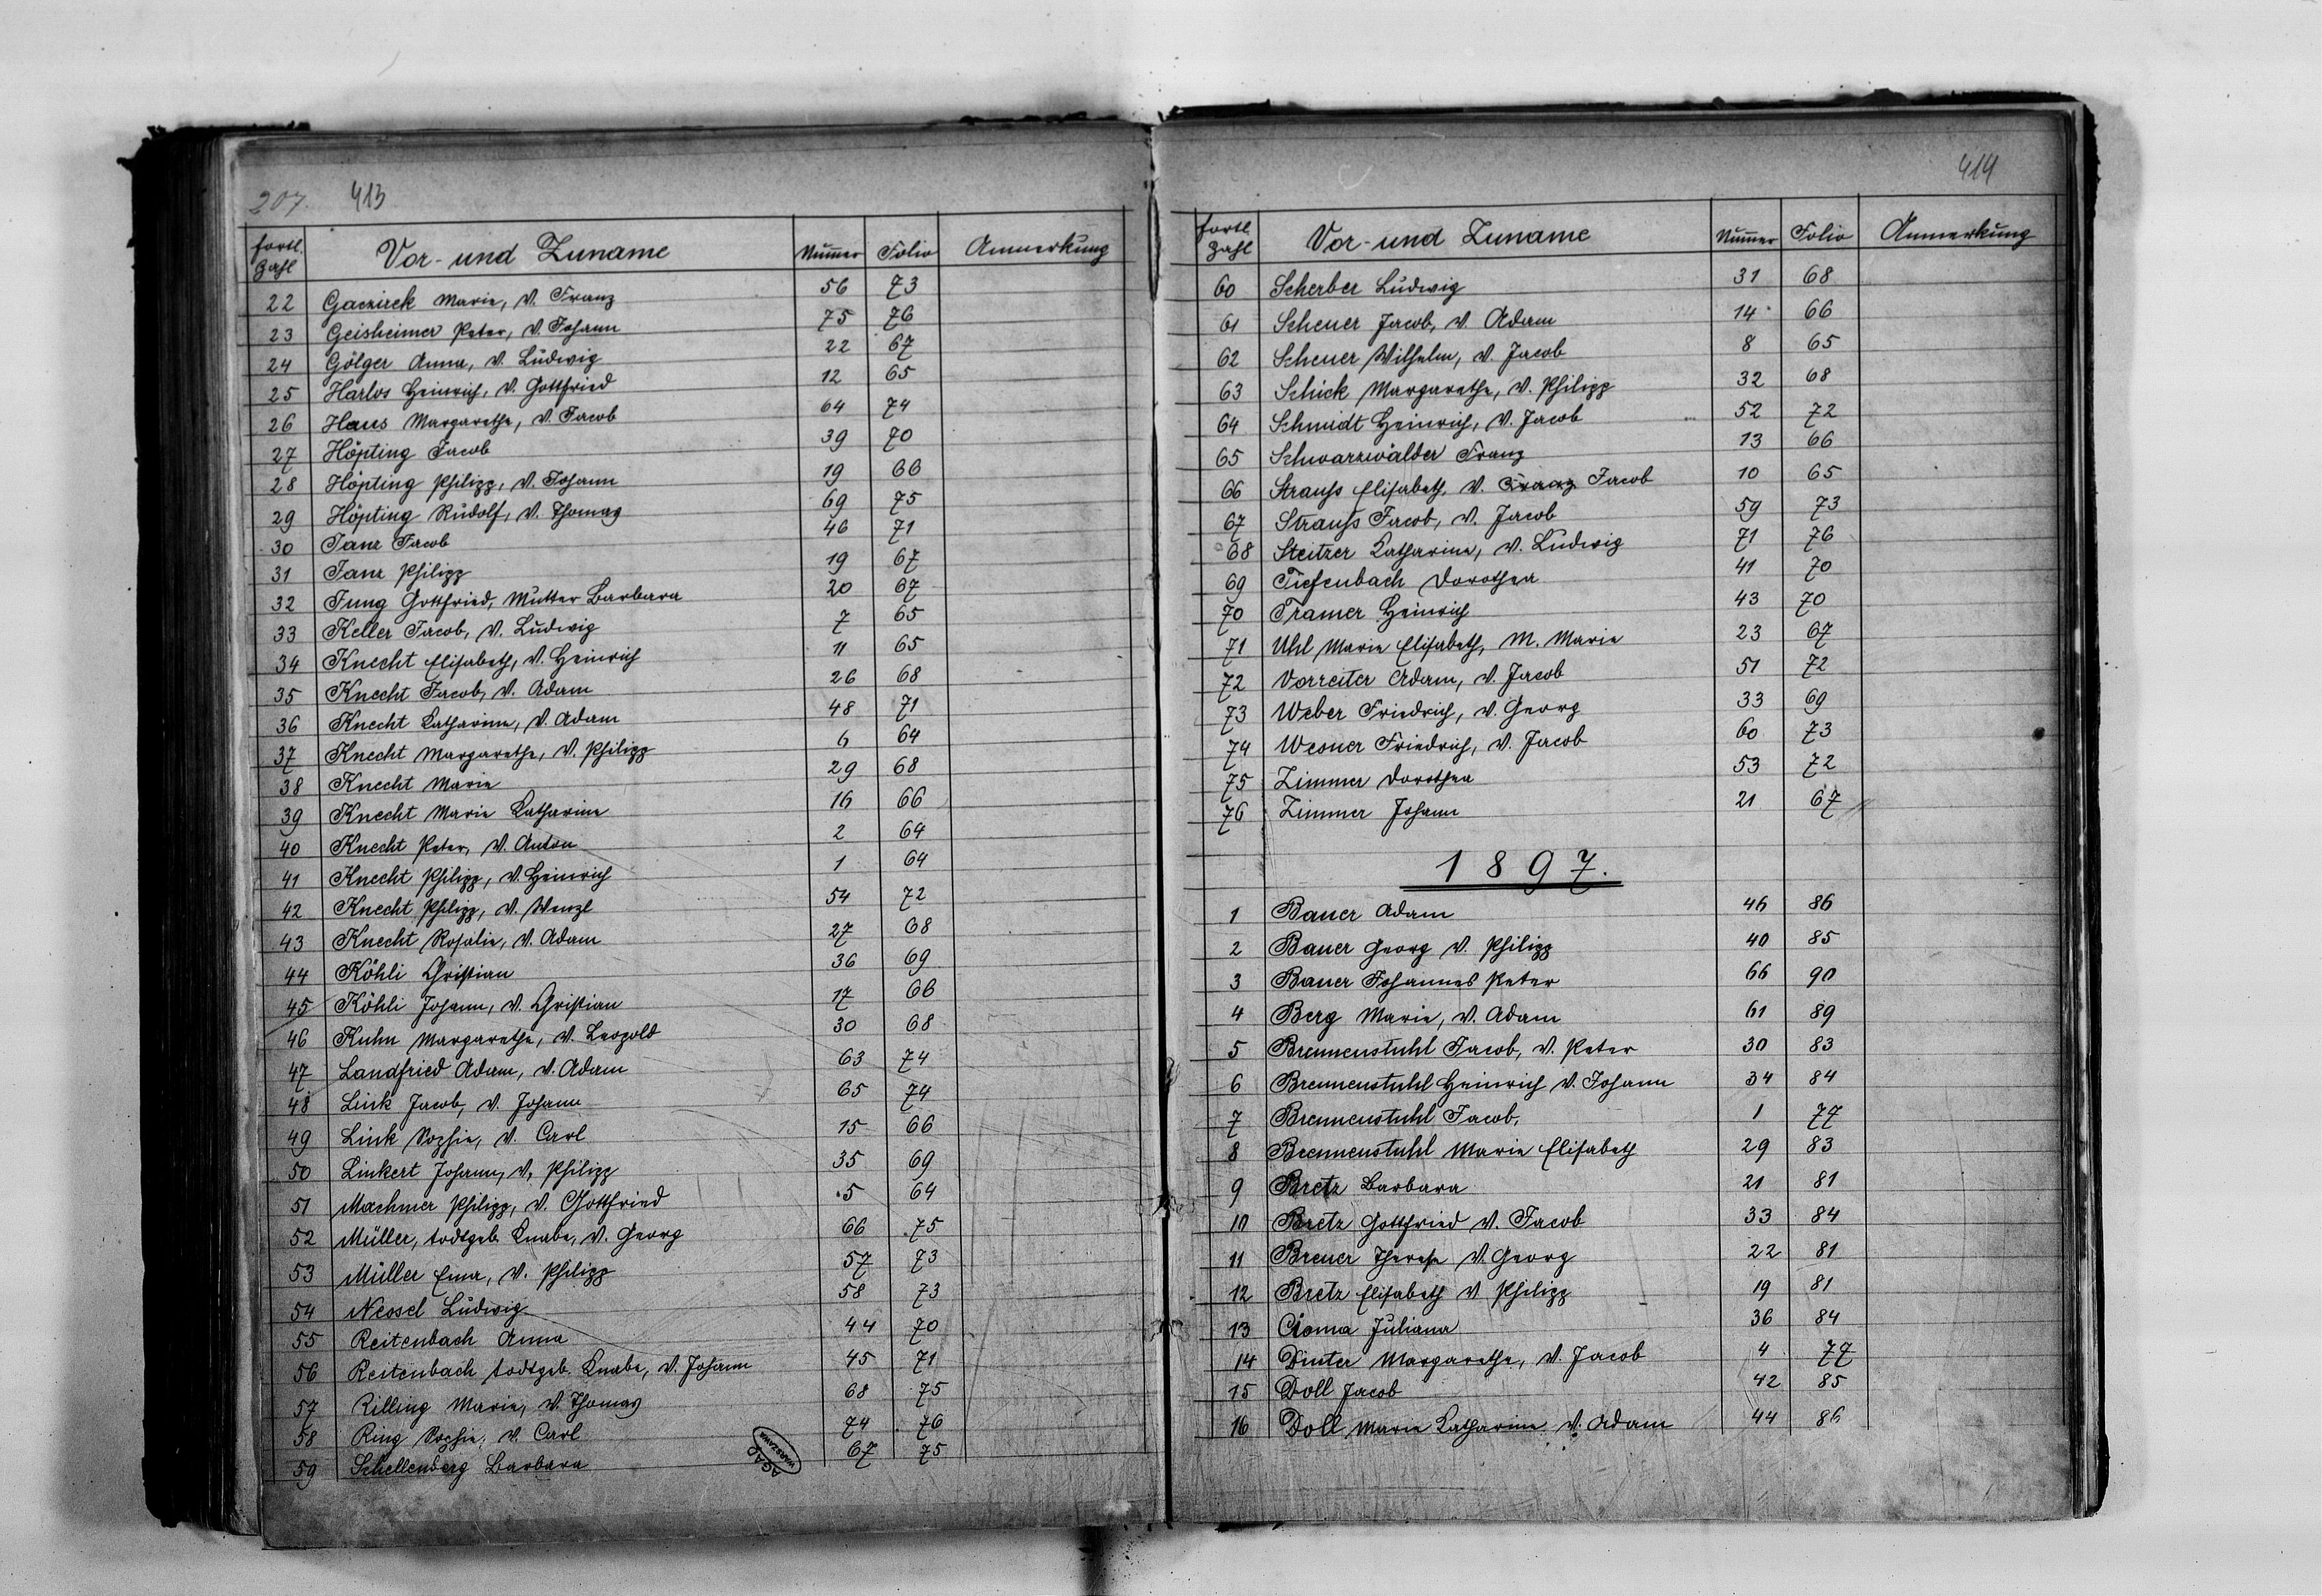 207. 413
fortl. Zahl Vor- und Zuname Nummer Folio Anmerkung
22 Gaczirek Marie, V. Franz 56 73
23 Geisheimer Peter, V. Johann 75 76
24 Gölger Anna, V. Ludwig 22 67
25 Harlos Heinrich, V. Gottfried 12 65
26 Haus Margarethe, V. Jacob 64 74
27 Höpting Jacob 39 70
28 Höpting Philipp, V. Johann 19 66
29 Höpting Rudolf, V. Thomas 69 75
30 Janz Jacob 46 71
31 Janz Philipp 19 67
32 Jung Gottfried, Mutter Barbara 20 67
33 Keller Jacob, V. Ludwig 7 65
34 Knecht Elisabeth, V. Heinrich 11 65
35 Knecht Jacob, V. Adam 26 68
36 Knecht Katharina, V. Adam 48 71
37 Knecht Margarethe, V. Philipp 6 64
38 Knecht Marie 29 68
39 Knecht Marie Katharina 16 66
40 Knecht Peter, V. Anton 2 64
41 Knecht Philipp, V. Heinrich 1 64
42 Knecht Philipp, V. Wenzl 54 72
43 Knecht Rosalie, V. Adam 27 68
44 Köhli Christian 36 69
45 Köhli Johann, V. Christian 17 66
46 Kuhn Margarethe, V. Leopold 30 68
47 Landfried Adam, V. Adam 63 74
48 Link Jacob, V. Johann 65 74
49 Link Sophie, V. Carl 15 66
50 Linkert Johann, V. Philipp 35 69
51 Machmer Philipp, V. Gottfried 5 64
52 Müller, todtgeb. Knabe, V. Georg 66 75
53 Müller Ema, V. Philipp 57 73
54 Nessel Ludwig 58 73
55 Reitenbach Anna 44 70
56 Reitenbach todtgeb. Knabe, V. Johann 45 71
57 Rilling Marie, V. Thomas 68 75
58 Ring Sophie, V. Carl 74 76
59 Schellenberg Barbara 67 75
AGAD WARSZAWA
414
fortl. Zahl Vor- und Zuname Nummer Folio Anmerkung
60 Scherber Ludwig 31 68
61 Scheuer Jacob, V. Adam 14 66
62 Scheuer Wilhelm, V. Jacob 8 65
63 Schick Margarethe, V. Philipp 32 68
64 Schmidt Heinrich, V. Jacob 52 72
65 Schwarzwälder Franz 13 66
66 Strauss Elisabeth, V. Franz Jacob 10 65
67 Strauss Jacob, V. Jacob 59 73
68 Steitzer Katharina, V. Ludwig 71 76
69 Tiefenbach Dorothea 41 70
70 Tramer Heinrich 43 70
71 Uhl Marie Elisabeth, M. Marie 23 67
72 Vorreiter Adam, V. Jacob 51 72
73 Weber Friedrich, V. Georg 33 69
74 Wesner Friedrich, V. Jacob 60 73
75 Zimmer Dorothea 53 72
76 Zimmer Johann 21 67
1897.
1 Bauer Adam 46 86
2 Bauer Georg V. Philipp 40 85
3 Bauer Johannes Peter 66 90
4 Berg Marie, V. Adam 61 89
5 Brennenstuhl Jacob, V. Peter 30 83
6 Brennenstuhl Heinrich V. Johann 34 84
7 Brennenstuhl Jacob, 1 77
8 Brennenstuhl Marie Elisabeth 29 83
9 Bretz Barbara 21 81
10 Bretz Gottfried V. Jacob 33 84
11 Breuer Therese V. Georg 22 81
12 Bretz Elisabeth V. Philipp 19 81
13 Cioma Juliana 36 84
14 Dinter Margarethe, V. Jacob 4 77
15 Doll Jacob 42 85
16 Doll Marie Katharina V. Adam 44 86